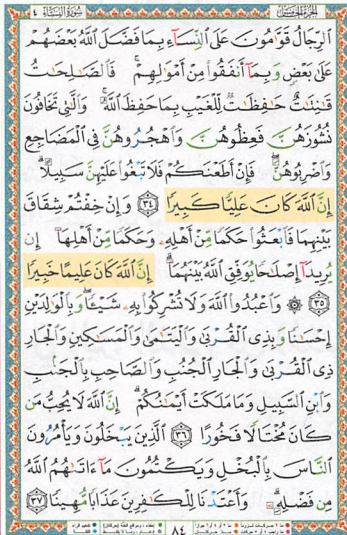 الجزء الخامس سورة النساء ٤
ٱلرِّجَالُ قَوَّٰمُونَ عَلَى ٱلنِّسَآءِ بِمَا فَضَّلَ ٱللَّهُ بَعْضَهُمْ
عَلَىٰ بَعْضٍ وَبِمَآ أَنفَقُوا۟ مِنْ أَمْوَٰلِهِمْ ۚ فَٱلصَّـٰلِحَـٰتُ
قَـٰنِتَـٰتٌ حَـٰفِظَـٰتٌ لِّلْغَيْبِ بِمَا حَفِظَ ٱللَّهُ ۚ وَٱلَّـٰتِى تَخَافُونَ
نُشُوزَهُنَّ فَعِظُوهُنَّ وَٱهْجُرُوهُنَّ فِى ٱلْمَضَاجِعِ
وَٱضْرِبُوهُنَّ ۖ فَإِنْ أَطَعْنَكُمْ فَلَا تَبْغُوا۟ عَلَيْهِنَّ سَبِيلًا ۗ
إِنَّ ٱللَّهَ كَانَ عَلِيًّا كَبِيرًا ٣٤ وَإِنْ خِفْتُمْ شِقَاقَ
بَيْنِهِمَا فَٱبْعَثُوا۟ حَكَمًا مِّنْ أَهْلِهِۦ وَحَكَمًا مِّنْ أَهْلِهَآ إِن
يُرِيدَآ إِصْلَـٰحًا يُوَفِّقِ ٱللَّهُ بَيْنَهُمَآ ۗ إِنَّ ٱللَّهَ كَانَ عَلِيمًا خَبِيرًا
٣٥ ۞ وَٱعْبُدُوا۟ ٱللَّهَ وَلَا تُشْرِكُوا۟ بِهِۦ شَيْـًٔا ۖ وَبِٱلْوَٰلِدَيْنِ
إِحْسَـٰنًا وَبِذِى ٱلْقُرْبَىٰ وَٱلْيَتَـٰمَىٰ وَٱلْمَسَـٰكِينِ وَٱلْجَارِ
ذِى ٱلْقُرْبَىٰ وَٱلْجَارِ ٱلْجُنُبِ وَٱلصَّاحِبِ بِٱلْجَنۢبِ
وَٱبْنِ ٱلسَّبِيلِ وَمَا مَلَكَتْ أَيْمَـٰنُكُمْ ۗ إِنَّ ٱللَّهَ لَا يُحِبُّ مَن
كَانَ مُخْتَالًا فَخُورًا ٣٦ ٱلَّذِينَ يَبْخَلُونَ وَيَأْمُرُونَ
ٱلنَّاسَ بِٱلْبُخْلِ وَيَكْتُمُونَ مَآ ءَاتَىٰهُمُ ٱللَّهُ
مِن فَضْلِهِۦ ۗ وَأَعْتَدْنَا لِلْكَـٰفِرِينَ عَذَابًا مُّهِينًا ٣٧
٨٤